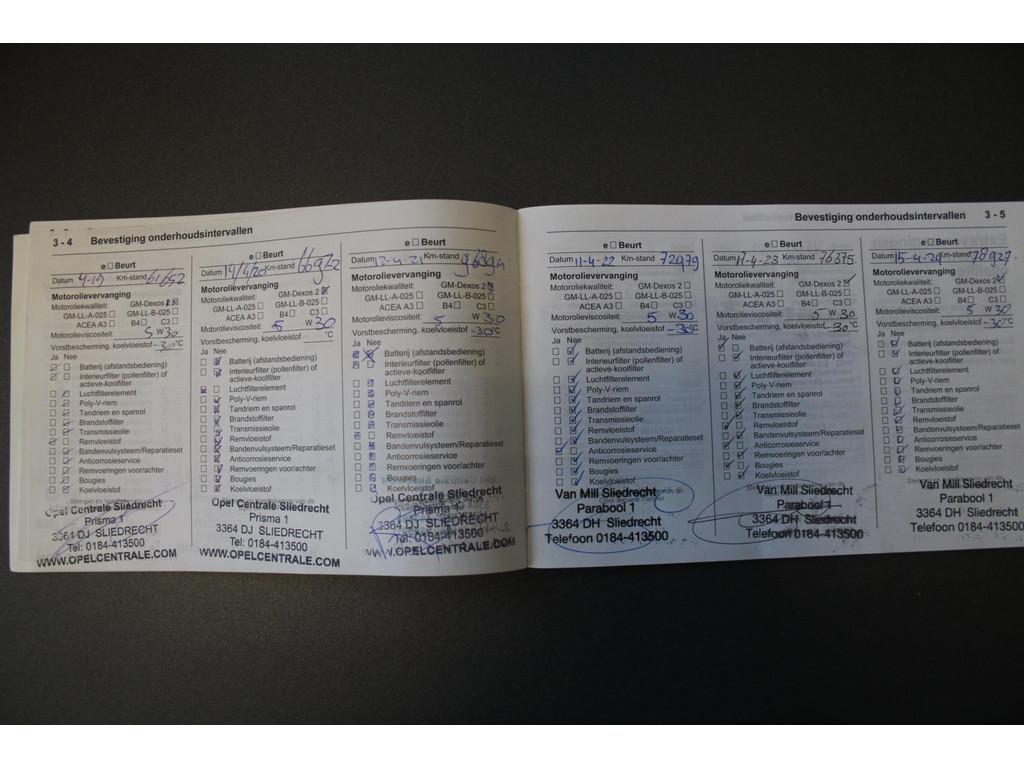 3 - 4 Bevestiging onderhoudsintervallen
e □ Beurt
Datum 4-19 Km-stand 61652
Motorolievervanging
Motoroliekwaliteit: GM-Dexos 2
GM-LL-A-025 □ GM-LL-B-025 □
ACEA A3 □ B4 □ C3 □
Motorolieviscositeit: 5 W 30
Vorstbescherming, koelvloeistof -30 °C
Ja Nee
Batterij (afstandsbediening)
Interieurfilter (pollenfilter) of
actieve-koolfilter
Luchtfilterelement
Poly-V-riem
Tandriem en spanrol
Brandstoffilter
Transmissieolie
Remvloeistof
Bandenvulsysteem/Reparatieset
Anticorrosieservice
Remvoeringen voor/achter
Bougies
Koelvloeistof
Opel Centrale Sliedrecht
Prisma 1
3364 DJ SLIEDRECHT
Tel: 0184-413500
WWW.OPELCENTRALE.COM
e □ Beurt
Datum 14/4/20 Km-stand 66972
Motorolievervanging
Motoroliekwaliteit: GM-Dexos 2
GM-LL-A-025 □ GM-LL-B-025 □
ACEA A3 □ B4 □ C3 □
Motorolieviscositeit: 5 W 30
Vorstbescherming, koelvloeistof °C
Ja Nee
Batterij (afstandsbediening)
Interieurfilter (pollenfilter) of
actieve-koolfilter
Luchtfilterelement
Poly-V-riem
Tandriem en spanrol
Brandstoffilter
Transmissieolie
Remvloeistof
Bandenvulsysteem/Reparatieset
Anticorrosieservice
Remvoeringen voor/achter
Bougies
Koelvloeistof
Opel Centrale Sliedrecht
Prisma 1
3364 DJ SLIEDRECHT
Tel: 0184-413500
WWW.OPELCENTRALE.COM
e □ Beurt
Datum 12-4-21 Km-stand
Motorolievervanging
Motoroliekwaliteit: GM-Dexos 2
GM-LL-A-025 □ GM-LL-B-025 □
ACEA A3 □ B4 □ C3 □
Motorolieviscositeit: 5 W 30
Vorstbescherming, koelvloeistof -30 °C
Ja Nee
Batterij (afstandsbediening)
Interieurfilter (pollenfilter) of
actieve-koolfilter
Luchtfilterelement
Poly-V-riem
Tandriem en spanrol
Brandstoffilter
Transmissieolie
Remvloeistof
Bandenvulsysteem/Reparatieset
Anticorrosieservice
Remvoeringen voor/achter
Bougies
Koelvloeistof
Opel Centrale Sliedrecht
Prisma 1
3364 DJ SLIEDRECHT
Tel: 0184-413500
WWW.OPELCENTRALE.COM
Bevestiging onderhoudsintervallen 3 - 5
e □ Beurt
Datum 11-4-22 Km-stand 72979
Motorolievervanging
Motoroliekwaliteit: GM-Dexos 2
GM-LL-A-025 □ GM-LL-B-025 □
ACEA A3 □ B4 □ C3 □
Motorolieviscositeit: 5 W 30
Vorstbescherming, koelvloeistof -30 °C
Ja Nee
Batterij (afstandsbediening)
Interieurfilter (pollenfilter) of
actieve-koolfilter
Luchtfilterelement
Poly-V-riem
Tandriem en spanrol
Brandstoffilter
Transmissieolie
Remvloeistof
Bandenvulsysteem/Reparatieset
Anticorrosieservice
Remvoeringen voor/achter
Bougies
Koelvloeistof
Van Mill Sliedrecht
Parabool 1
3364 DH Sliedrecht
Telefoon 0184-413500
e □ Beurt
Datum 17-4-23 Km-stand 76375
Motorolievervanging
Motoroliekwaliteit: GM-Dexos 2
GM-LL-A-025 □ GM-LL-B-025 □
ACEA A3 □ B4 □ C3 □
Motorolieviscositeit: 5 W 30
Vorstbescherming, koelvloeistof -30 °C
Ja Nee
Batterij (afstandsbediening)
Interieurfilter (pollenfilter) of
actieve-koolfilter
Luchtfilterelement
Poly-V-riem
Tandriem en spanrol
Brandstoffilter
Transmissieolie
Remvloeistof
Bandenvulsysteem/Reparatieset
Anticorrosieservice
Remvoeringen voor/achter
Bougies
Koelvloeistof
Van Mill Sliedrecht
Parabool 1
3364 DH Sliedrecht
Telefoon 0184-413500
e □ Beurt
Datum 15-4-24 Km-stand 78927
Motorolievervanging
Motoroliekwaliteit: GM-Dexos 2
GM-LL-A-025 □ GM-LL-B-025 □
ACEA A3 □ B4 □ C3 □
Motorolieviscositeit: 5 W 30
Vorstbescherming, koelvloeistof -30 °C
Ja Nee
Batterij (afstandsbediening)
Interieurfilter (pollenfilter) of
actieve-koolfilter
Luchtfilterelement
Poly-V-riem
Tandriem en spanrol
Brandstoffilter
Transmissieolie
Remvloeistof
Bandenvulsysteem/Reparatieset
Anticorrosieservice
Remvoeringen voor/achter
Bougies
Koelvloeistof
Van Mill Sliedrecht
Parabool 1
3364 DH Sliedrecht
Telefoon 0184-413500